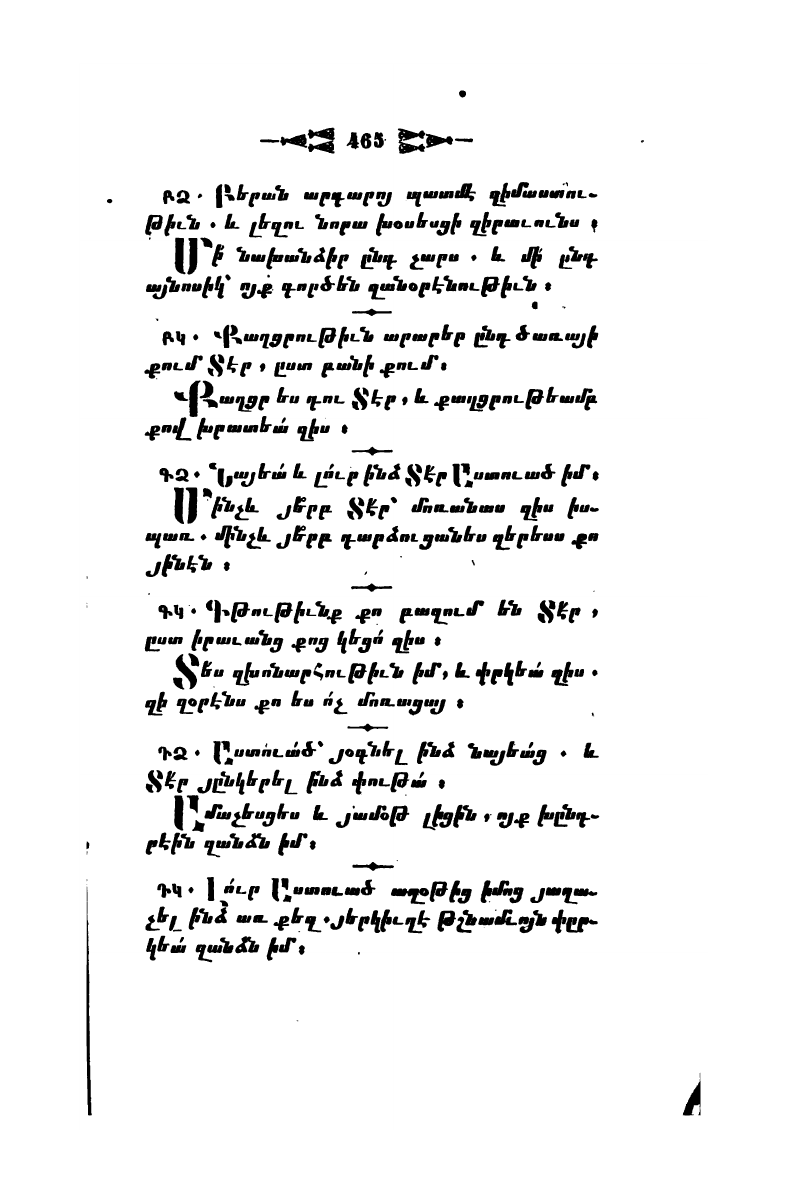 465
ԲՁ. Բերան արդարոյ պատմէ զիմաստու-
թիւն. և լեզու նորա խօսեսցի զիրաւունս։
Մի՛ նախանձիր ընդ չարս. և մի՛ ընդ
այնոսիկ՝ ոյք գործեն զանօրէնութիւն։
ԲԿ. Քաղցրութիւն արարեր ընդ ծառայի
քում Տէր, ըստ բանի քում։
Քաղցր ես դու Տէր, և քաղցրութեամբ
քով խրատեա՛ զիս։
ԳՁ. Նայեա՛ և լո՛ւր ինձ Տէր Աստուած իմ։
Մինչև յե՞րբ Տէր՝ մոռանաս զիս իս-
պառ. մինչև յե՞րբ դարձուցանես զերեսս քո
յինէն։
ԳԿ. Գթութիւնք քո բազում են Տէր,
ըստ իրաւանց քոց կեցո՛ զիս։
Տե՛ս զխոնարհութիւն իմ, և փրկեա՛ զիս.
զի զօրէնս քո ես ո՛չ մոռացայ։
ԴՁ. Աստուա՛ծ՝ յօգնել ինձ նայեա՛ց. և
Տէր յընկերել ինձ փութա՛։
Ամաչեսցես և յամօթ լիցին, ոյք խընդ-
րէին զանձն իմ։
ԴԿ. Լո՛ւր Աստուած աղօթից իմոց յաղա-
չել ինձ առ քեզ. յերկիւղէ թշնամւոյն փըր-
կեա՛ զանձն իմ։